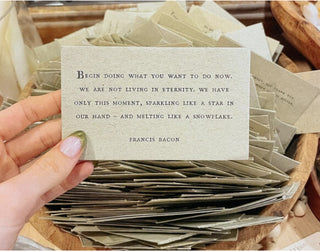 Begin doing what you want to do now.
We are not living in eternity. We have
only this moment, sparkling like a star in
our hand – and melting like a snowflake.
Francis Bacon